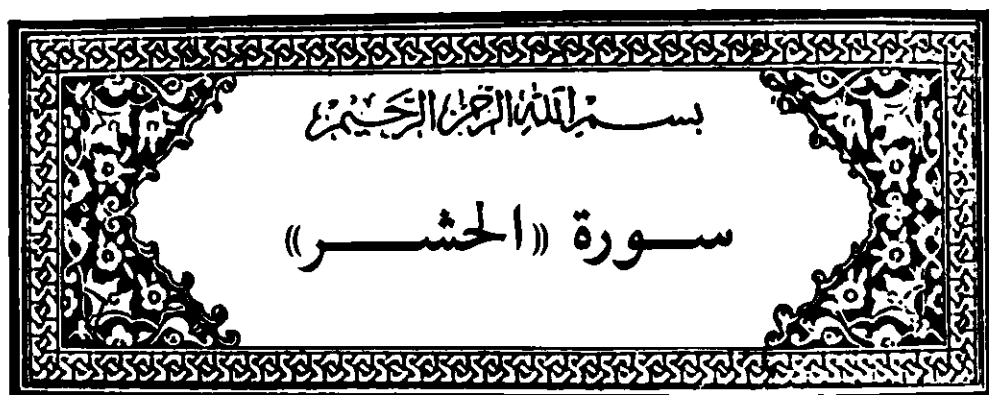 بسم الله الرحمن الرحيم
سورة ((الحشر))